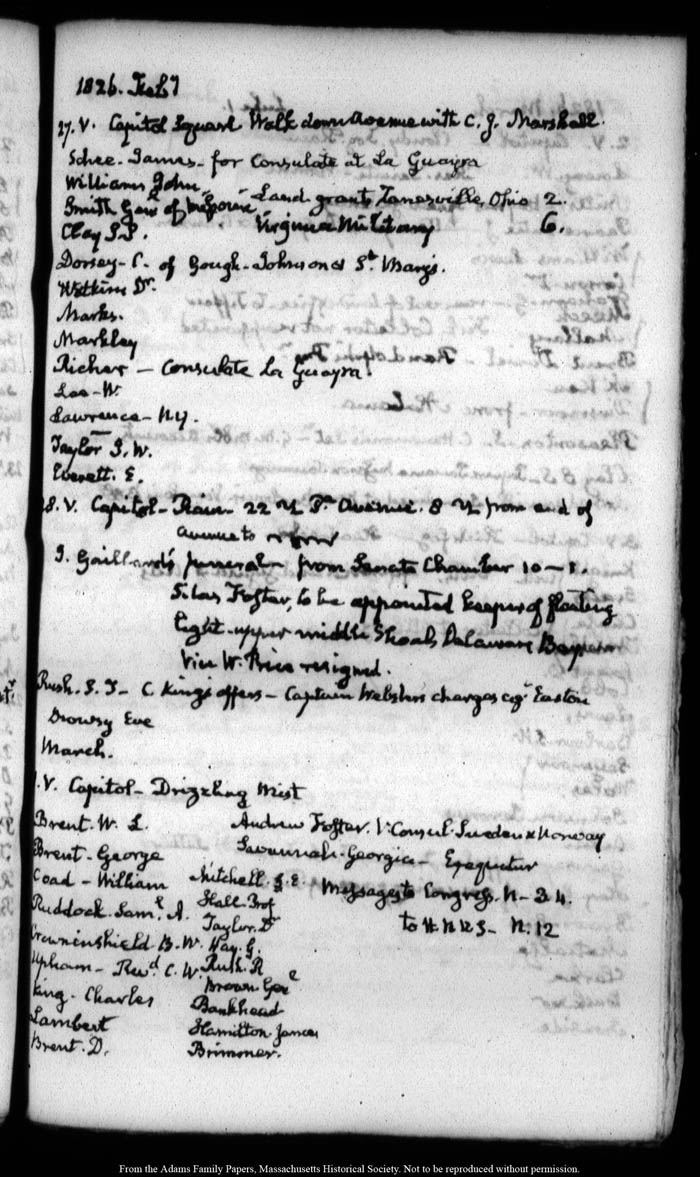 1826. Feby
27. V. Capitol Square Walk down Avenue with C. J. Marshall.
Schee. James - for Consulate at La Guayra
Williams John,
Smith Genl of Missouri - Land grants Zanesville, Ohio 2.
Clay J. P. Virginia Military 6.
Dorsey - C. of Gough - Johnson of St. Mary's.
Watkins Dr.
Marks.
Markley
Richer - Consulate La Guayra.
Lee - W.
Lawrence - N.Y.
Taylor J. W.
Everett. E.
28. V. Capitol - Rain - 22 M Pa Avenue. 8 M from end of
avenue to
J. Gaillard's funeral - from Senate Chamber 10 - 1.
Silas Foster, to be appointed keeper of floating
light - upper middle Shoals Delaware Bay
vice W. Price resigned.
Rush. S. J - C King's offers - Captain Webster's charges agt Easton
Drowsy Eve
March.
1. V. Capitol - Drizzling Mist
Brent. W. L. Andrew Foster V. Consul Sweden & Norway
Brent - George Savannah. Georgia - Exequatur
Coad - William Mitchell. G. E. Messages to Congress. N - 34.
Ruddock. Saml. A. Hall. Prof to H. R U S - N. 12
Taylor. Dr
Crowninshield. B. W. Hay. G.
Upham - Revd C. W. Rush. R
King - Charles Brown Genl
Lambert Bankhead
Brent. D. Hamilton James
Brimmer.
From the Adams Family Papers, Massachusetts Historical Society. Not to be reproduced without permission.